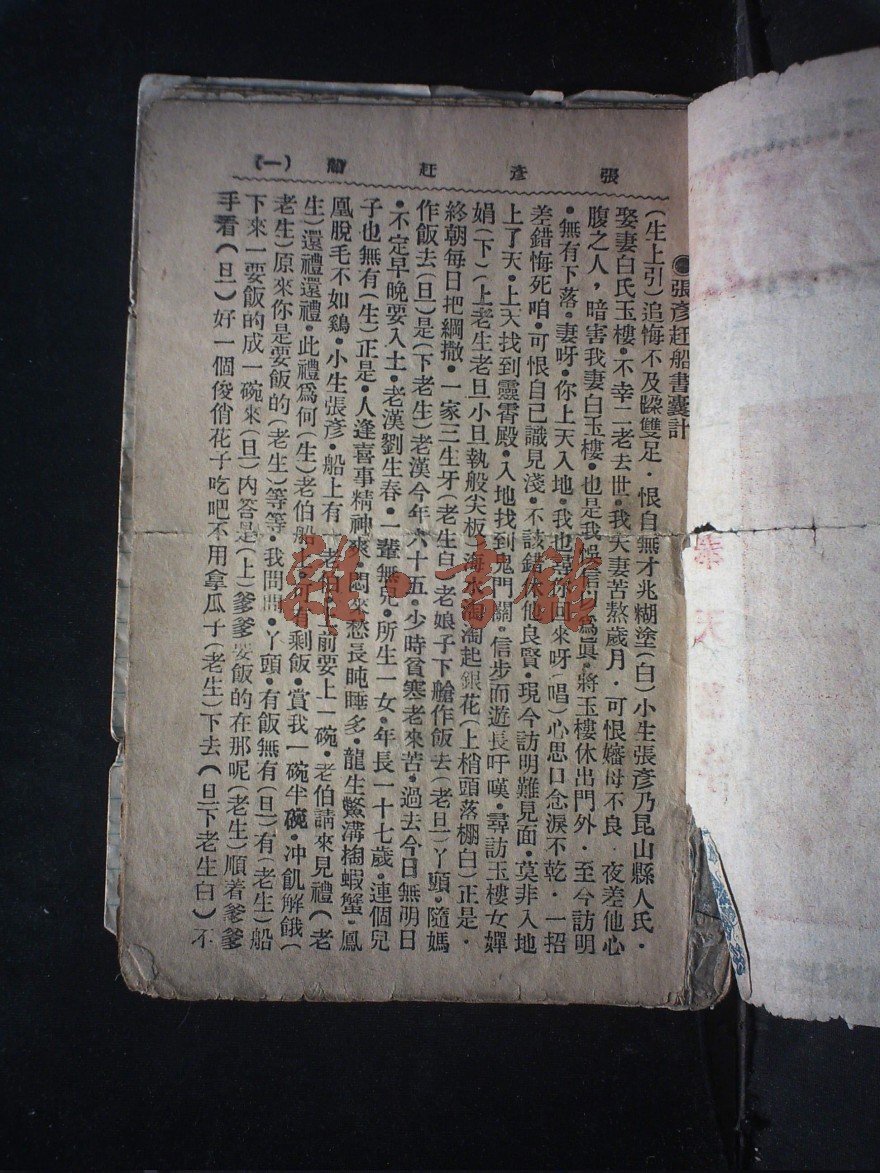 張彥赶船 (一)
●張彥赶船書囊計
(生上引)追悔不及跺雙足．恨自無才兆糊塗(白)小生張彥乃昆山縣人氏●
娶妻白氏玉樓●不幸二老去世●我夫妻苦熬歲月．可恨嬸母不良．夜差他心
腹之人，暗害我妻白玉樓●也是我 信以爲眞●將玉樓休出門外．至今訪明
●無有下落●妻呀●你上天入地●我也尋你回來呀(唱)心思口念淚不乾．一招
差錯悔死咱●可恨自己識見淺●不該錯休他良賢●現今訪明難見面●莫非入地
上了天●上天找到靈霄殿●入地找到鬼門關●信步而遊長吁嘆●尋訪玉樓女嬋
娟(下)(上老生老旦小旦執般尖板)海水淘淘起銀花(上梢頭落棚白)正是．
終朝每日把網撒．一家三生牙(老生白)老娘子下艙作飯去(老旦)丫頭●隨媽
作飯去(旦)是(下老生)老漢今年六十五●少時貧寒老來苦●過去今日無明日
●不定早晚要入土●老漢劉生春●一輩無兒●所生一女●年長一十七歲●連個兒
子也無有(生)正是●人逢喜事精神爽●悶來愁長盹睡多●龍生鱉溝掏蝦蟹●鳳
凰脫毛不如鷄●小生張彥●船上有 老伯 前要上一碗●老伯請來見禮(老
生)還禮還禮●此禮爲何(生)老伯船 可有剩飯●賞我一碗半碗●冲飢解餓(
老生)原來你是要飯的(老生)等等●我問問●丫頭●有飯無有(旦)有(老生)船
下來一要飯的成一碗來(旦)內答是(上)爹爹要飯的在那呢(老生)順着爹爹
手看(旦)好一個俊俏花子吃吧不用拿瓜子(老生)下去(旦下老生白)不
雜·書館
奉天